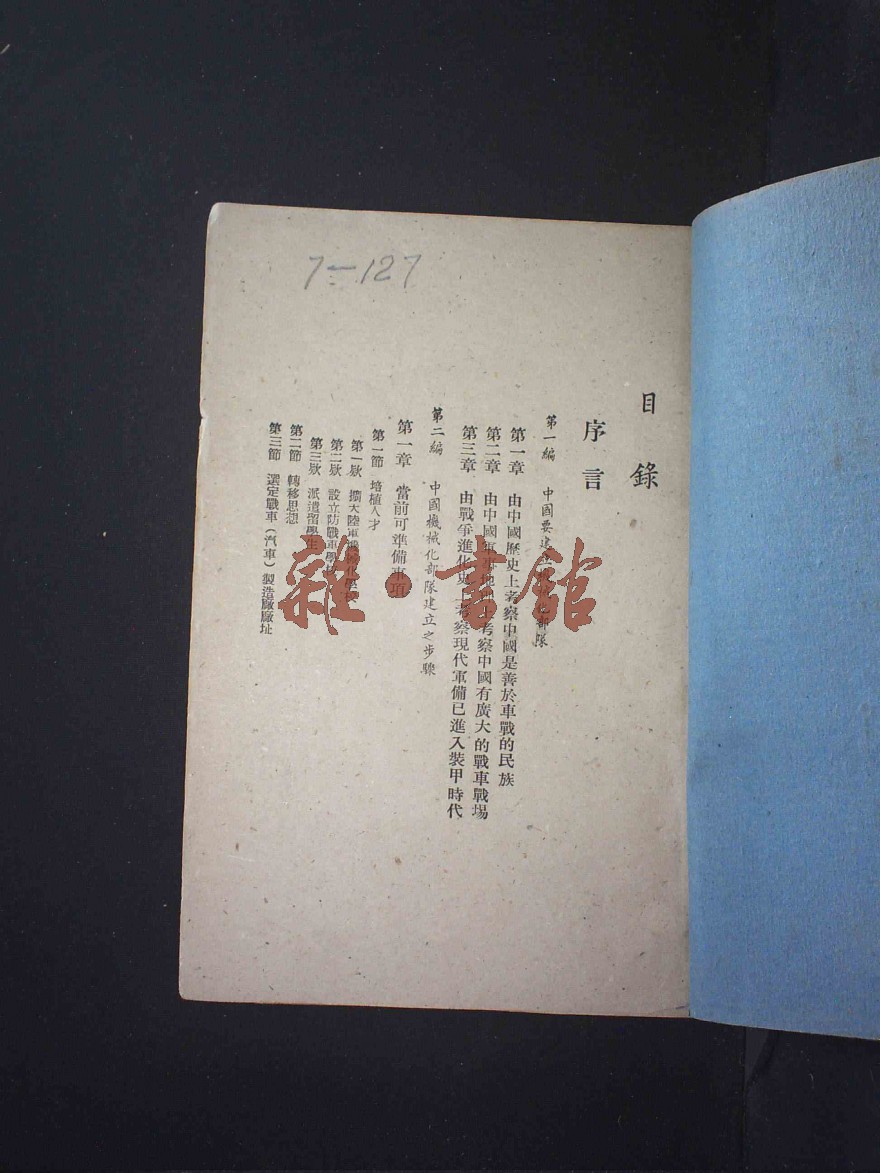 7-127
目錄
序言
第一編 中國要建立機械化部隊
第一章 由中國歷史上考察中國是善於車戰的民族
第二章 由中國軍事地理上考察中國有廣大的戰車戰場
第三章 由戰爭進化史上考察現代軍備已進入裝甲時代
第二編 中國機械化部隊建立之步驟
第一章 當前可準備事項
第一節 培植人才
第一欵 擴大陸軍機械化學校
第二欵 設立防戰車學校
第三欵 派遣留學生
第二節 轉移思想
第三節 選定戰車(汽車)製造廠廠址
雜·書館